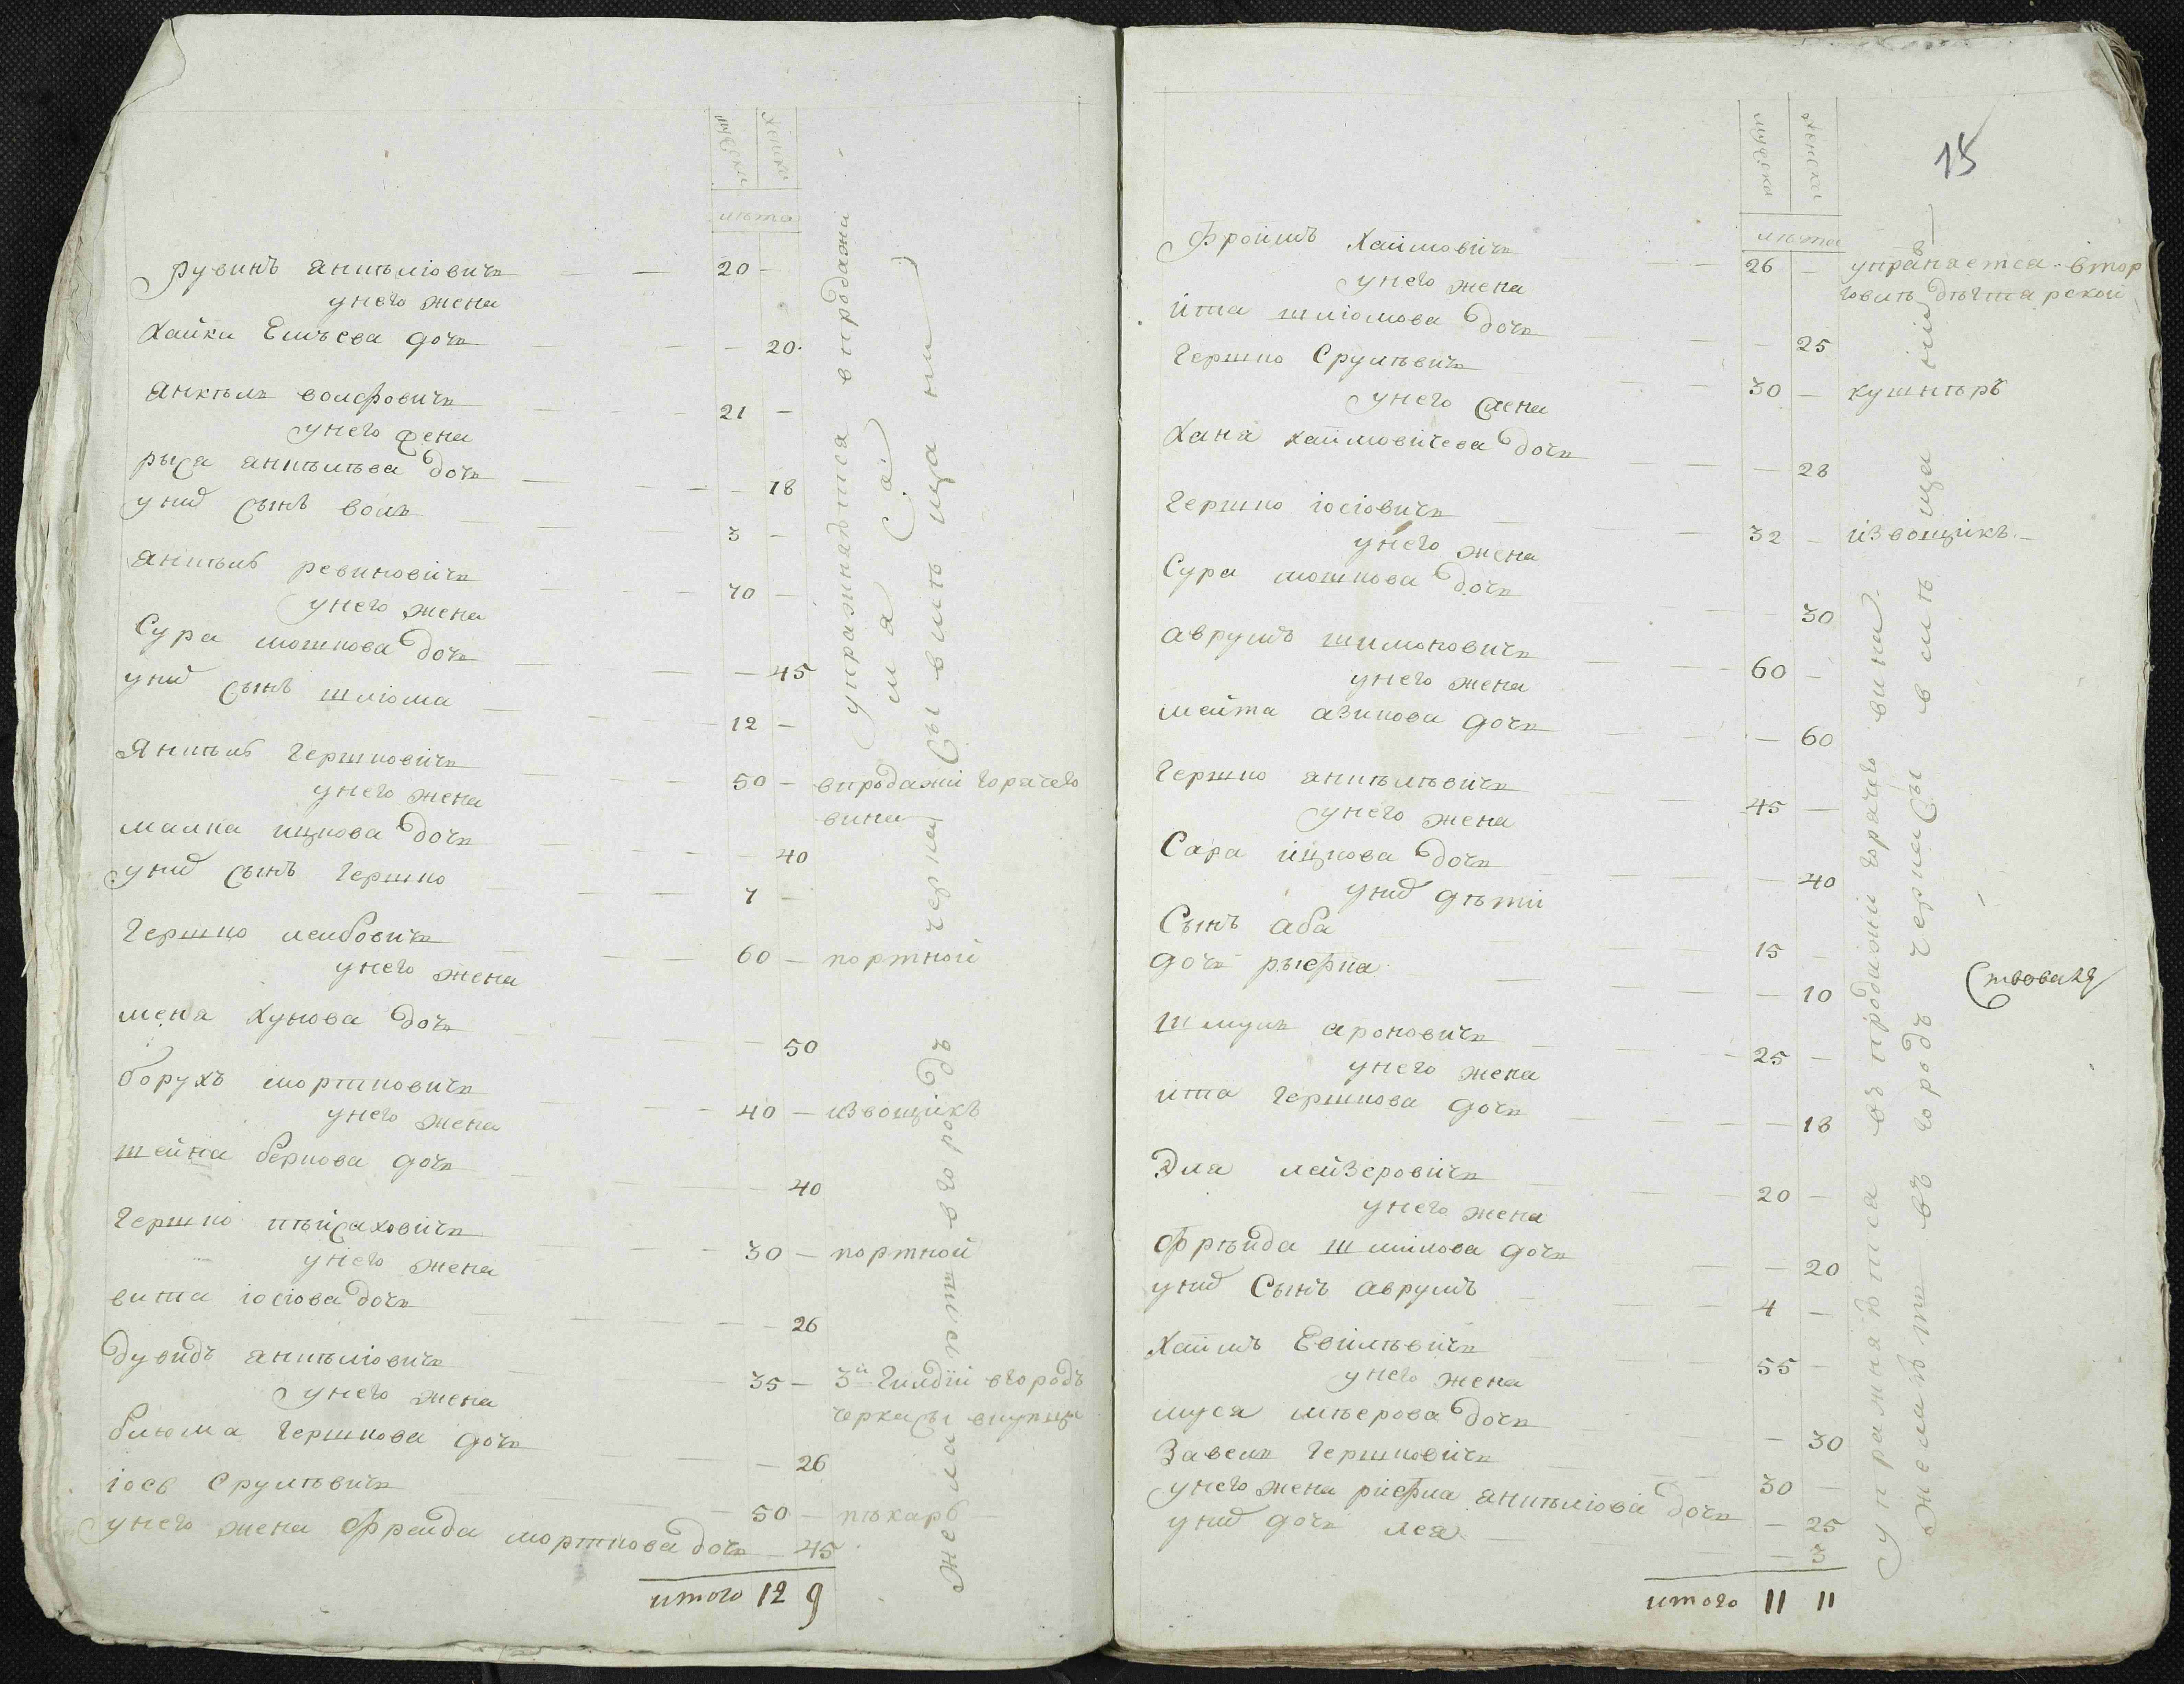 мужеска
женска
лѣта
рувинъ анкѣлiовичь — 20 —
унего жена
хайка Елиѣева дочь — 20
анкѣль волфовичь — 21 —
унего жена
рыся анкѣлѣва дочь — 18
унихъ сынъ воль — 3 —
анкѣль ревиновичь — 70 —
унего жена
Сура мошкова дочь — 45
унихъ сынъ шлiома — 12 —
Янкѣль гершковичь — 50 — впродажи горячего
унего жена
вина
малка ицкова дочь — 40
унихъ сынъ гершко — 7 —
гершко лейбовичь — 60 — портной
унего жена
меня хунова дочь — 50
борухъ мортковичь — 40 — извощикъ
унего жена
шейна беркова дочь — 40
гершко пѣйсаховичь — 30 — портной
унего жена
вита iосiова дочь — 26
дувидъ анкѣлiовичь — 35 — 3й Гилдiи вгородъ
унего жена
черкасы вкупцы
блюма гершкова дочь — 26
iось Срулѣвичь — 50 — пѣкарь
унего жена Фрейда морткова дочь — 45
итого 12 9
упражняются в продажи
желаютъ вгородъ черка сы вмѣ ща ни
15
мужеска
женска
лѣта
Фроимъ Хаимовичь — 26 — упраняется втор
унего жена
говлѣ дѣгтярской
ита шлiомова дочь — 25
Гершко Срулѣвичь — 30 — кушнѣръ
унего жена
Хана хаимовичева дочь — 28
гершко iосiовичь — 32 — извощикъ
унего жена
Сура мошкова дочь — 30
аврумъ шимоновичь — 60 —
унего жена
мейта азикова дочь — 60
гершко анкѣлѣвичь — 45 —
унего жена
Сара ицкова дочь — 40
унихъ дѣти
Сынъ аба — 15 —
дочь рыфка — 10
шмуль ароновичь — 25 —
унего жена
ита гершкова дочь — 18
Эля лейзеровичь — 20 —
унего жена
Фрѣйда шмилова дочь — 20
унихъ Сынъ аврумъ — 4 —
Хаимъ Евилѣвичь — 55 —
унего жена
муся мѣерова дочь — 30
Завель гершковичь — 30 —
унего жена рифка анкѣлiова дочь — 25
унихъ дочь лея — 3
итого 11 11
упражняются въ продажи горячего вина
желаютъ въ городъ черкасы в мѣ ща нiи
ствовалъ